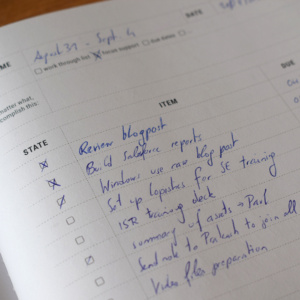 DATE
ME
August 31 - Sept. 4
work through list
focus support
due dates
matter what,
complish this:
ITEM
DUE
STATE
Review blogpost
Build Salesforce reports
Windows use case blog post
Set up logistics for SE training
ISR training deck
summary of assets
Send note to Prakash to join all
Video files preparation